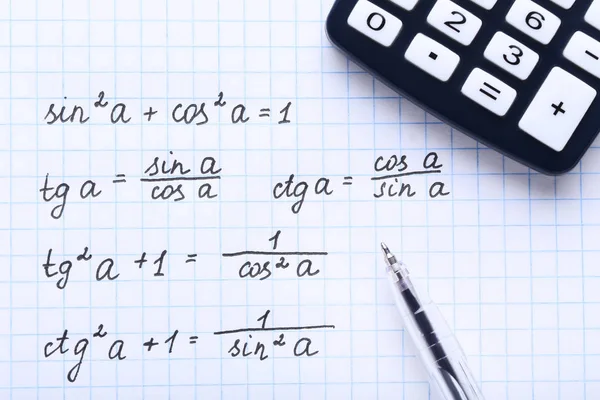 0 2 6
. 3 −
= +
sin²a + cos²a = 1
tg a = sin a / cos a ctg a = cos a / sin a
tg²a + 1 = 1 / cos²a
ctg²a + 1 = 1 / sin²a